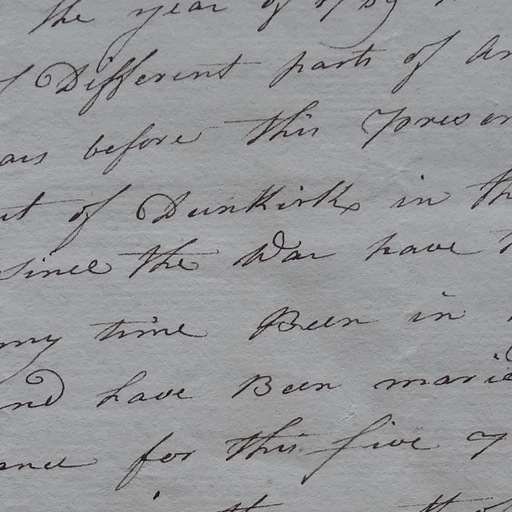 the year of 1789
Different parts of
before this presen
of Dunkirk in th
since the War have
my time Been in
nd have Been marie
for this five y